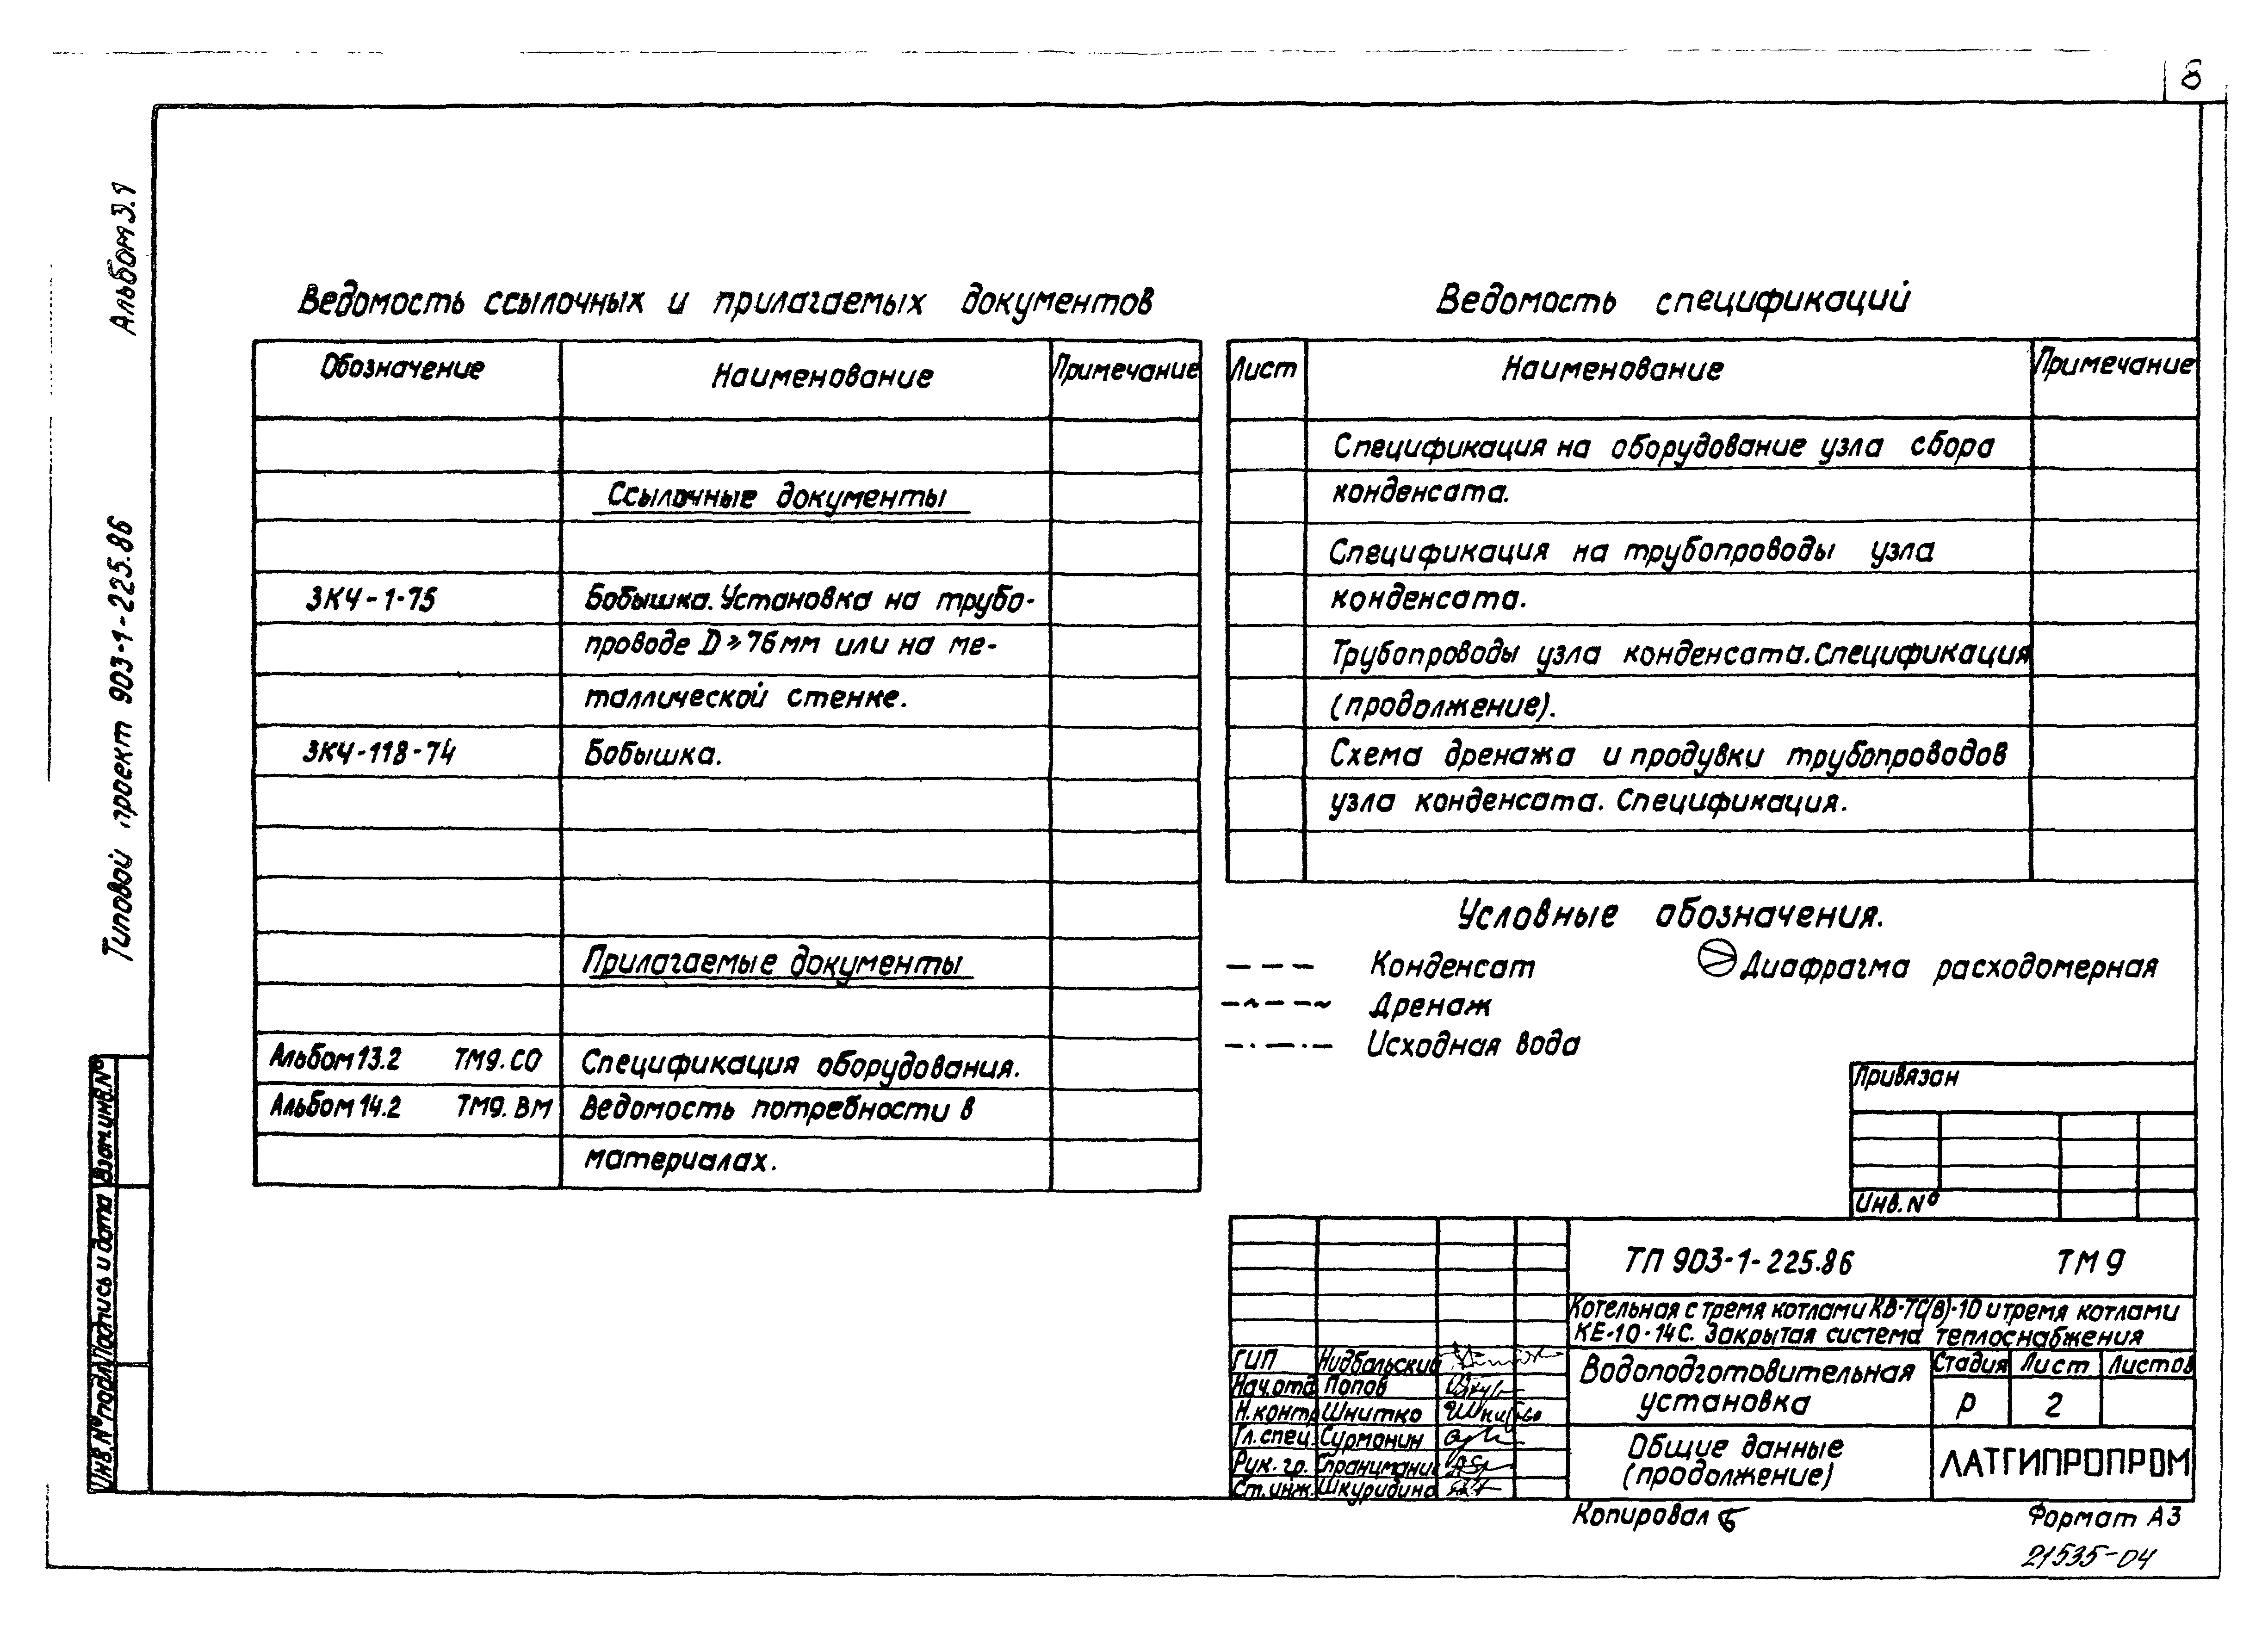 8
Альбом 3.1
Типовой проект 903-1-225.86
Взам.инв.№
Подпись и дата
Инв.№ подл.
Ведомость ссылочных и прилагаемых документов
Обозначение Наименование Примечание
Ссылочные документы
ЗКЧ-1-75 Бобышка. Установка на трубо-
проводе D ≥ 76 мм или на ме-
таллической стенке.
ЗКЧ-118-74 Бобышка.
Прилагаемые документы
Альбом 13.2 ТМ9.СО Спецификация оборудования.
Альбом 14.2 ТМ9.ВМ Ведомость потребности в
материалах.
Ведомость спецификаций
Лист Наименование Примечание
Спецификация на оборудование узла сбора
конденсата.
Спецификация на трубопроводы узла
конденсата.
Трубопроводы узла конденсата. Спецификация
(продолжение).
Схема дренажа и продувки трубопроводов
узла конденсата. Спецификация.
Условные обозначения.
Конденсат Диафрагма расходомерная
Дренаж
Исходная вода
Привязан
Инв.№
ТП 903-1-225.86 ТМ9
Котельная с тремя котлами КВ-ТС(В)-10 и тремя котлами
КЕ-10-14С. Закрытая система теплоснабжения
ГИП Нидбальский
Нач.отд Попов
Н.контр Шнитко
Гл.спец. Сурмонин
Рук. гр.
Ст.инж. Шкуридина
Водоподготовительная
установка
Стадия Лист Листов
Р 2
Общие данные
(продолжение)
ЛАТГИПРОПРОМ
Копировал
Формат А3
21535-04